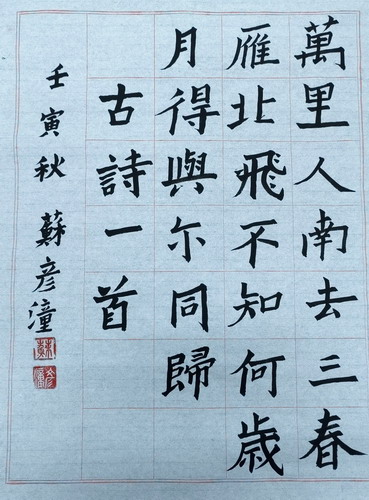 萬里人南去三春
雁北飛不知何歲
月得與尓同歸
古詩一首
壬寅秋 蘇彥潼